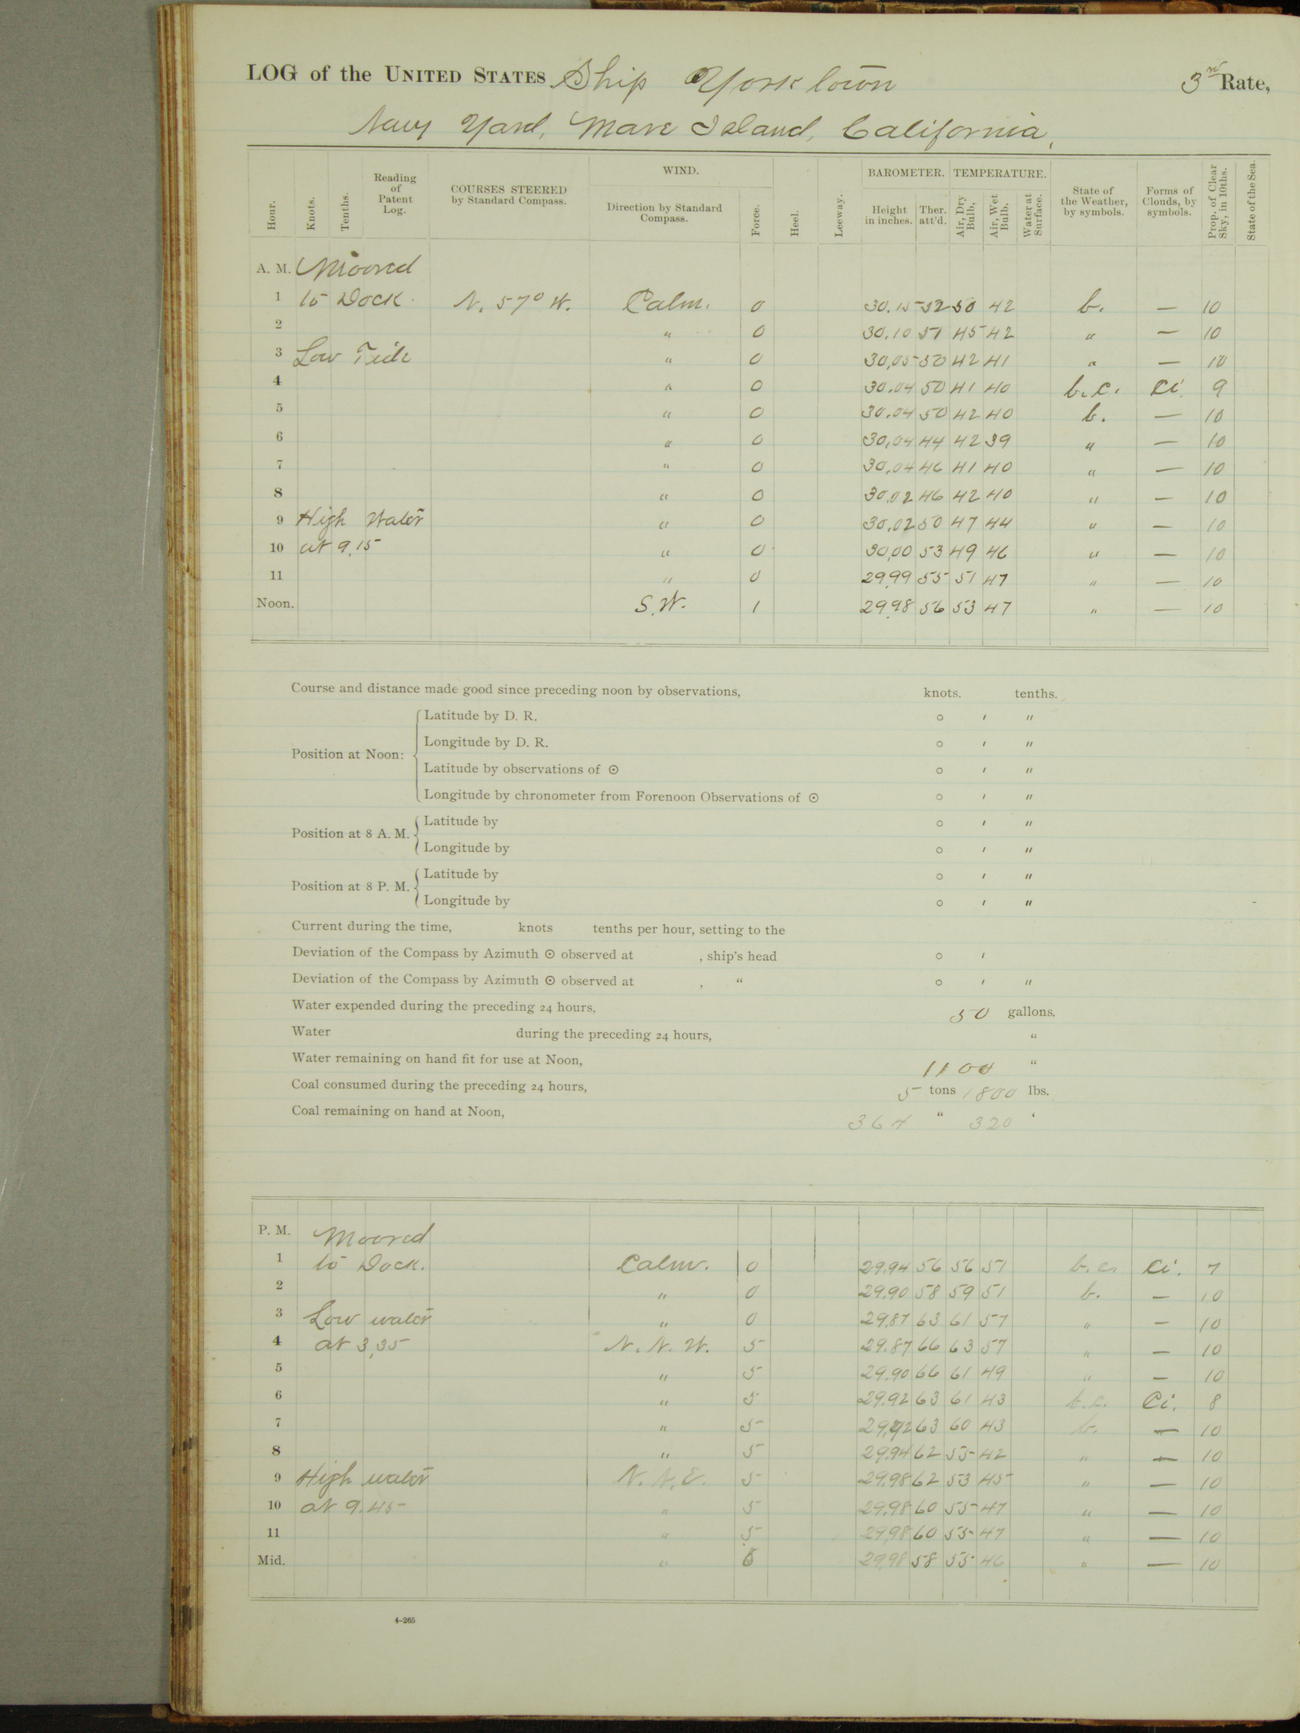 LOG of the UNITED STATES Ship Yorktown 3rd Rate,
Navy Yard, Mare Island, California,
Hour. Knots. Tenths. Reading of Patent Log. COURSES STEERED by Standard Compass. WIND. Direction by Standard Compass. Force. Heel. Leeway. BAROMETER. Height in inches. Ther. att'd. TEMPERATURE. Air, Dry Bulb. Air, Wet Bulb. Water at Surface. State of the Weather, by symbols. Forms of Clouds, by symbols. Prop. of Clear Sky, in 10ths. State of the Sea.
A. M. Moored
1 to Dock. N. 57° W. Calm. 0 30.15 52 50 42 b. — 10
2 " 0 30.10 51 45 42 " — 10
3 Low Tide " 0 30.05 50 42 41 " — 10
4 " 0 30.04 50 41 40 b.c. Ci. 9
5 " 0 30.04 50 42 40 b. — 10
6 " 0 30.04 44 42 39 " — 10
7 " 0 30.04 46 41 40 " — 10
8 " 0 30.02 46 42 40 " — 10
9 High Water " 0 30.02 50 47 44 " — 10
10 at 9.15 " 0 30.00 53 49 46 " — 10
11 " 0 29.99 55 51 47 " — 10
Noon. S.W. 1 29.98 56 53 47 " — 10
Course and distance made good since preceding noon by observations, knots. tenths.
Position at Noon: Latitude by D. R. ° ′ ″
Longitude by D. R. ° ′ ″
Latitude by observations of ⊙ ° ′ ″
Longitude by chronometer from Forenoon Observations of ⊙ ° ′ ″
Position at 8 A. M. Latitude by ° ′ ″
Longitude by ° ′ ″
Position at 8 P. M. Latitude by ° ′ ″
Longitude by ° ′ ″
Current during the time, knots tenths per hour, setting to the
Deviation of the Compass by Azimuth ⊙ observed at , ship's head ° ′
Deviation of the Compass by Azimuth ⊙ observed at , " ° ′ ″
Water expended during the preceding 24 hours, 50 gallons.
Water during the preceding 24 hours, "
Water remaining on hand fit for use at Noon, 1100 "
Coal consumed during the preceding 24 hours, 5 tons 1800 lbs.
Coal remaining on hand at Noon, 364 " 320 "
P. M. Moored
1 to Dock. Calm. 0 29.94 56 56 51 b.c. Ci. 7
2 " 0 29.90 58 59 51 b. — 10
3 Low water " 0 29.87 63 61 57 " — 10
4 at 3.35 N. N. W. 5 29.87 66 63 57 " — 10
5 " 5 29.90 66 61 49 " — 10
6 " 5 29.92 63 61 43 b.c. Ci. 8
7 " 5 29.92 63 60 43 b. — 10
8 " 5 29.94 62 55 42 " — 10
9 High water N.N.E. 5 29.98 62 53 45 " — 10
10 at 9.45 " 5 29.98 60 55 47 " — 10
11 " 5 29.98 60 55 47 " — 10
Mid. " 29.98 58 55 46 " — 10
4-265